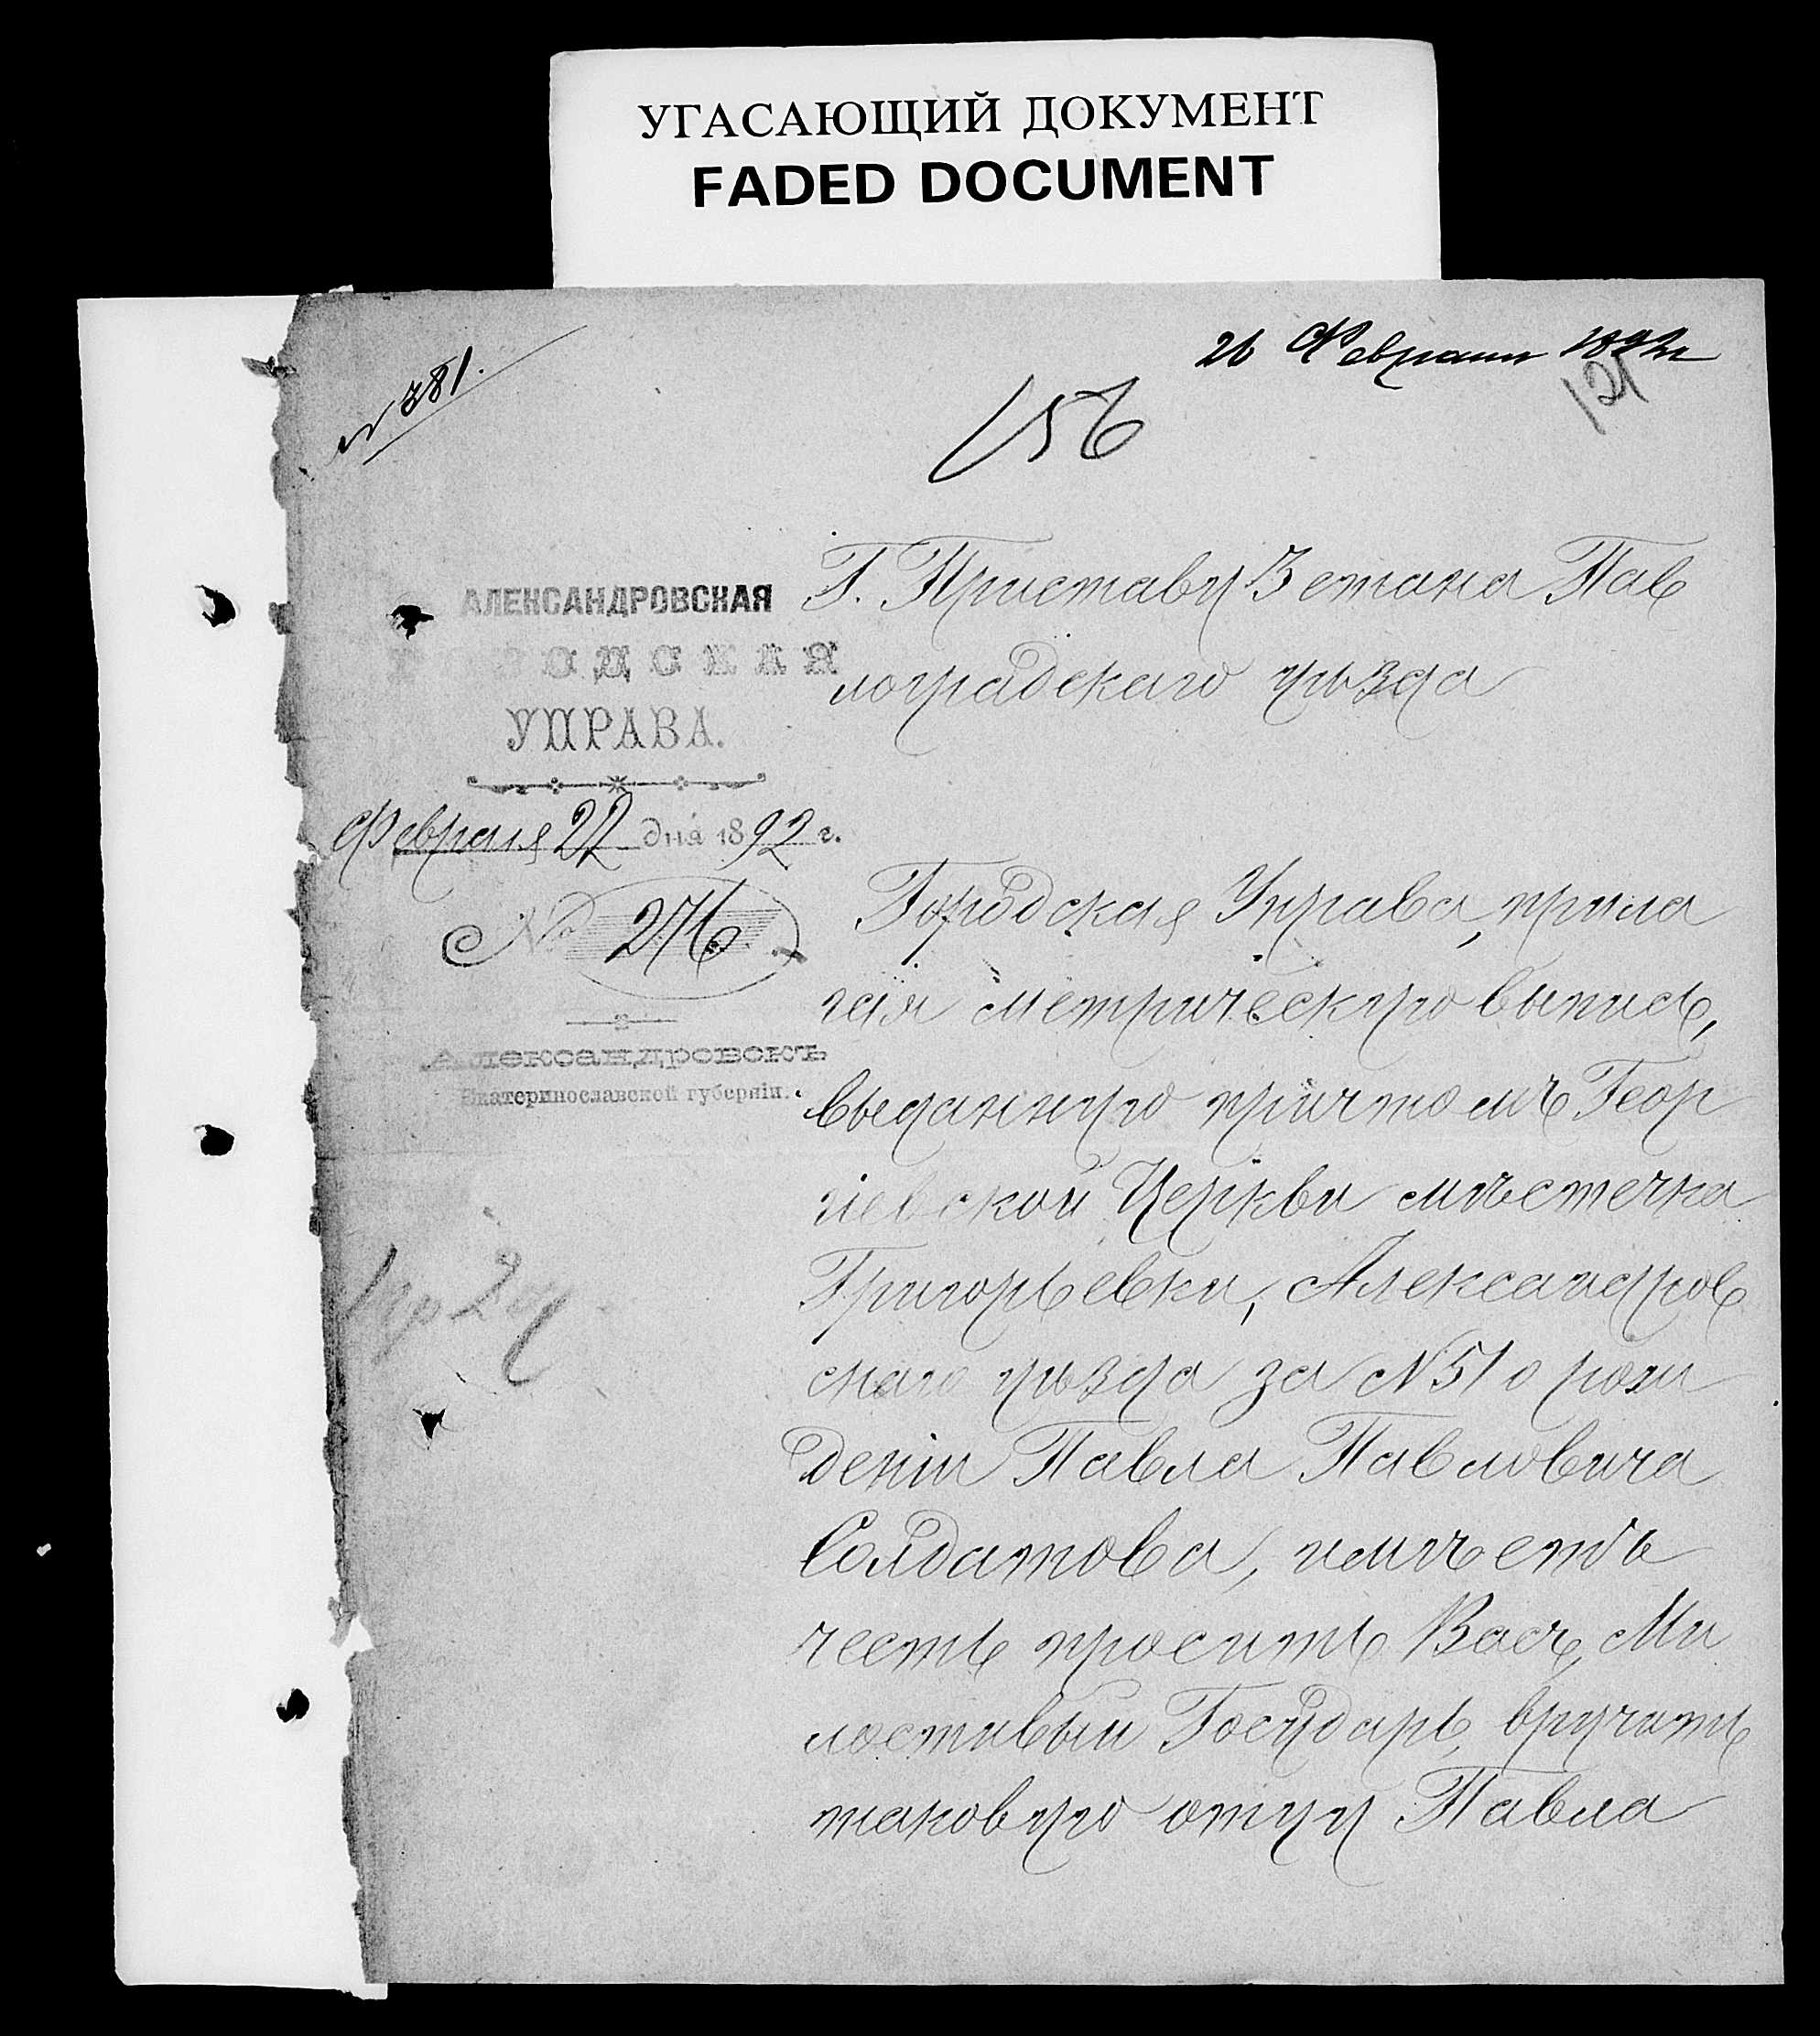 УГАСАЮЩИЙ ДОКУМЕНТ
FADED DOCUMENT
26 Февраля 1892 г
121
№ 381.
156
АЛЕКСАНДРОВСКАЯ
ГОРОДСКАЯ
УПРАВА.
Февраля 22 дня 1892 г.
№ 276
Александровскъ
Екатеринославской губерніи.
Г. Приставу 3 стана Пав
лоградскаго уѣзда
Городская Управа, прила
гая метрическую выпись,
выданную причтомъ Геор
гіевской Церкви мѣстечка
Григорьевки, Александров
скаго уѣзда за № 51 о рож
деніи Павла Павловича
Солдатова, имѣетъ
честь просить Васъ, Ми
лостивый Государь, вручить
таковую отцу Павла